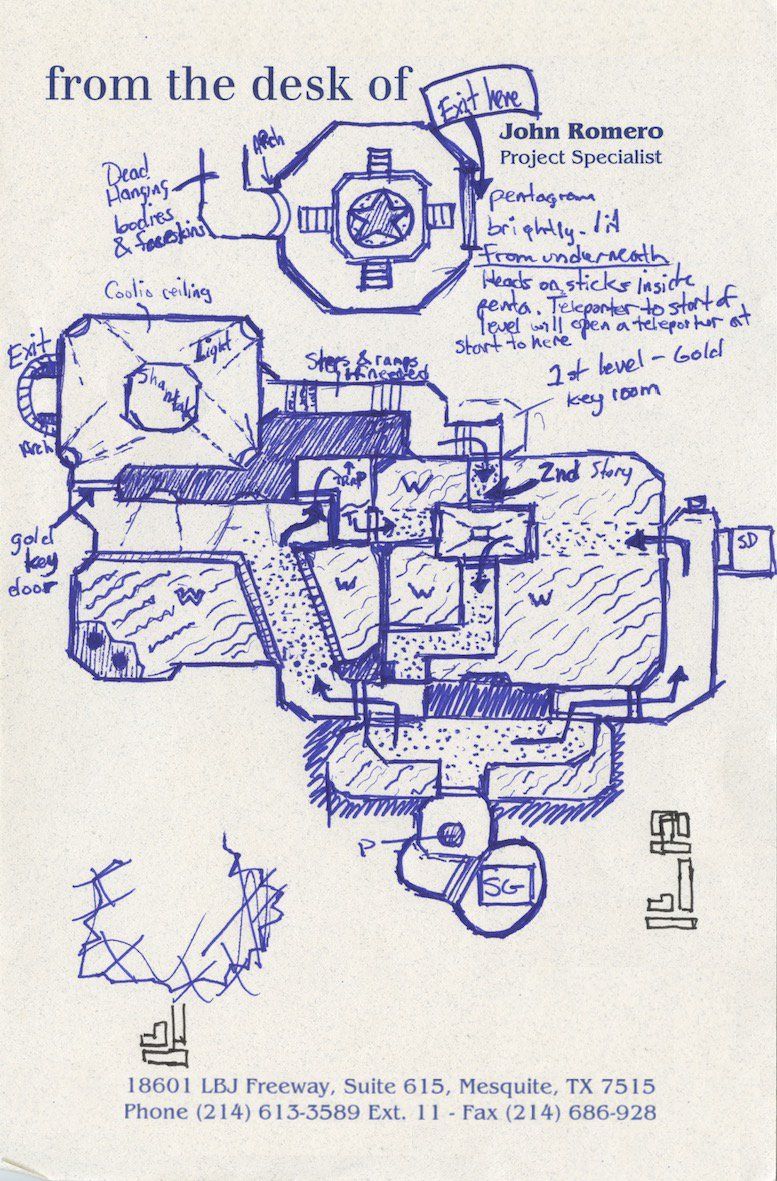 from the desk of
Exit here
John Romero
Project Specialist
Arch
Dead
Hanging
bodies
& foreskins
pentagram
brightly lit
From underneath
Heads on sticks inside
penta. Teleporter to start of
level will open a teleporter at
start to here
1st level - Gold
key room
Coolio ceiling
Exit
Light
Shantak
Steps & ramps
if needed
Arch
TRAP
W
2nd Story
T
SD
gold
key
door
W
W
W
W
P
SG
18601 LBJ Freeway, Suite 615, Mesquite, TX 7515
Phone (214) 613-3589 Ext. 11 - Fax (214) 686-928